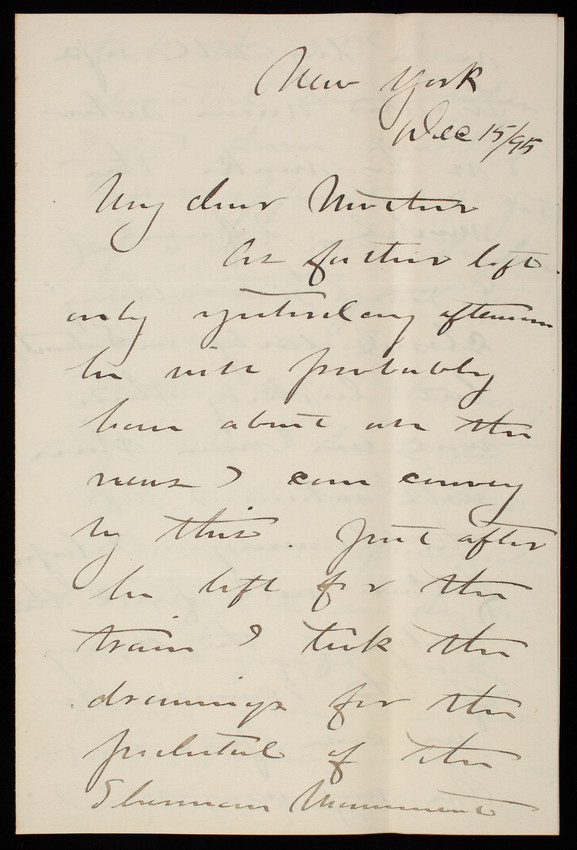 New York
Dec 15/95
My dear Mother
As father left
only yesterday afternoon
he will probably
have about all the
news I can convey
by this. Just after
he left for the
train I took the
drawings for the
pedestal of the
Sherman Monument